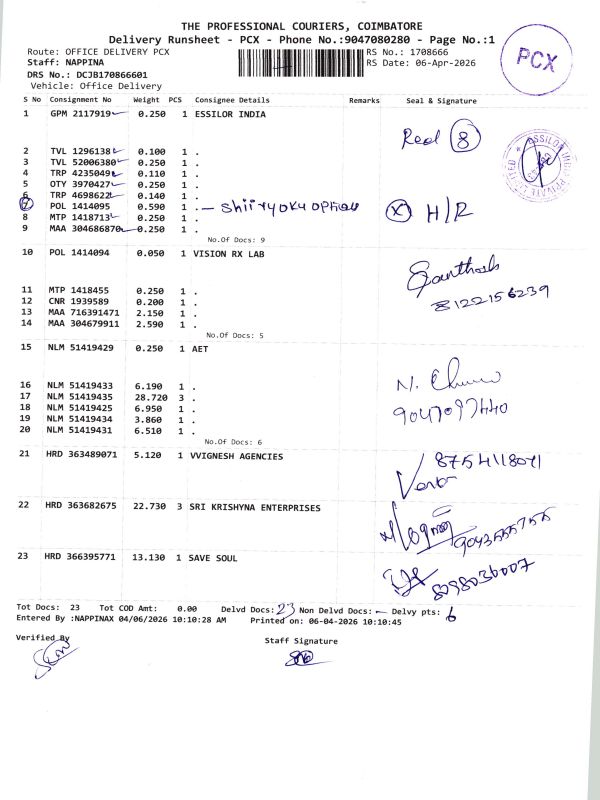 THE PROFESSIONAL COURIERS, COIMBATORE
Delivery Runsheet - PCX - Phone No.:9047080280 - Page No.:1
Route: OFFICE DELIVERY PCX
RS No.: 1708666
Staff: NAPPINA
RS Date: 06-Apr-2026
DRS No.: DCJB170866601
Vehicle: Office Delivery
PCX
S No Consignment No Weight PCS Consignee Details Remarks Seal & Signature
1 GPM 2117919 0.250 1 ESSILOR INDIA
Recd 8
2 TVL 1296138 0.100 1 .
3 TVL 52006380 0.250 1 .
4 TRP 4235049 0.110 1 .
5 OTY 3970427 0.250 1 .
6 TRP 4698622 0.140 1 .
7 POL 1414095 0.590 1 . X H/R
8 MTP 1418713 0.250 1 .
9 MAA 304686870 0.250 1 .
No.Of Docs: 9
10 POL 1414094 0.050 1 VISION RX LAB
8122156239
11 MTP 1418455 0.250 1 .
12 CNR 1939589 0.200 1 .
13 MAA 716391471 2.150 1 .
14 MAA 304679911 2.590 1 .
No.Of Docs: 5
15 NLM 51419429 0.250 1 AET
16 NLM 51419433 6.190 1 .
17 NLM 51419435 28.720 3 .
18 NLM 51419425 6.950 1 .
19 NLM 51419434 3.860 1 .
20 NLM 51419431 6.510 1 .
No.Of Docs: 6
21 HRD 363489071 5.120 1 VVIGNESH AGENCIES
22 HRD 363682675 22.730 3 SRI KRISHYNA ENTERPRISES
23 HRD 366395771 13.130 1 SAVE SOUL
8098036007
Tot Docs: 23 Tot COD Amt: 0.00 Delvd Docs: 23 Non Delvd Docs: - Delvy pts: 6
Entered By :NAPPINAX 04/06/2026 10:10:28 AM Printed on: 06-04-2026 10:10:45
Verified By
Staff Signature